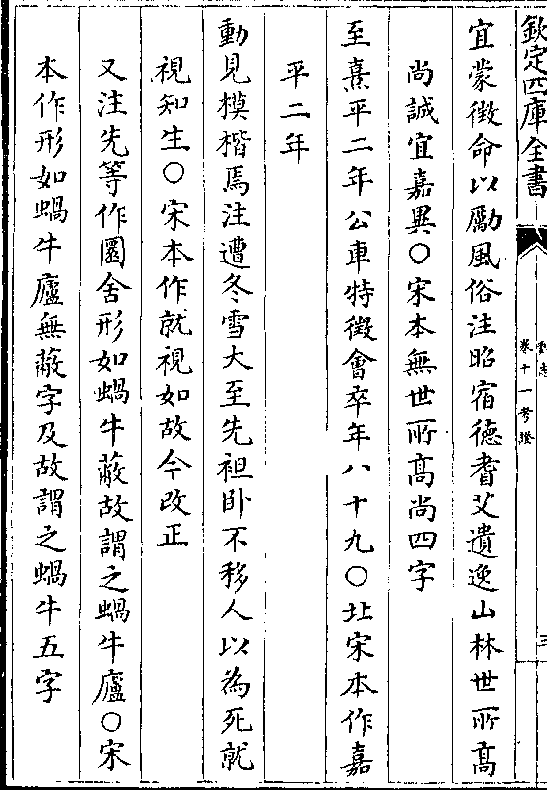 欽定四庫全書
魏志
卷十一考證
三
宜蒙徴命以勵風俗注昭宿德耆艾遺逸山林世所髙
尚誠宜嘉異○宋本無世所髙尚四字
至熹平二年公車特徴會卒年八十九○北宋本作嘉
平二年
動見模楷焉注遭冬雪大至先袒卧不移人以為死就
視知生○宋本作就視如故今改正
又注先等作圜舍形如蝸牛蔽故謂之蝸牛廬○宋
本作形如蝸牛廬無蔽字及故謂之蝸牛五字